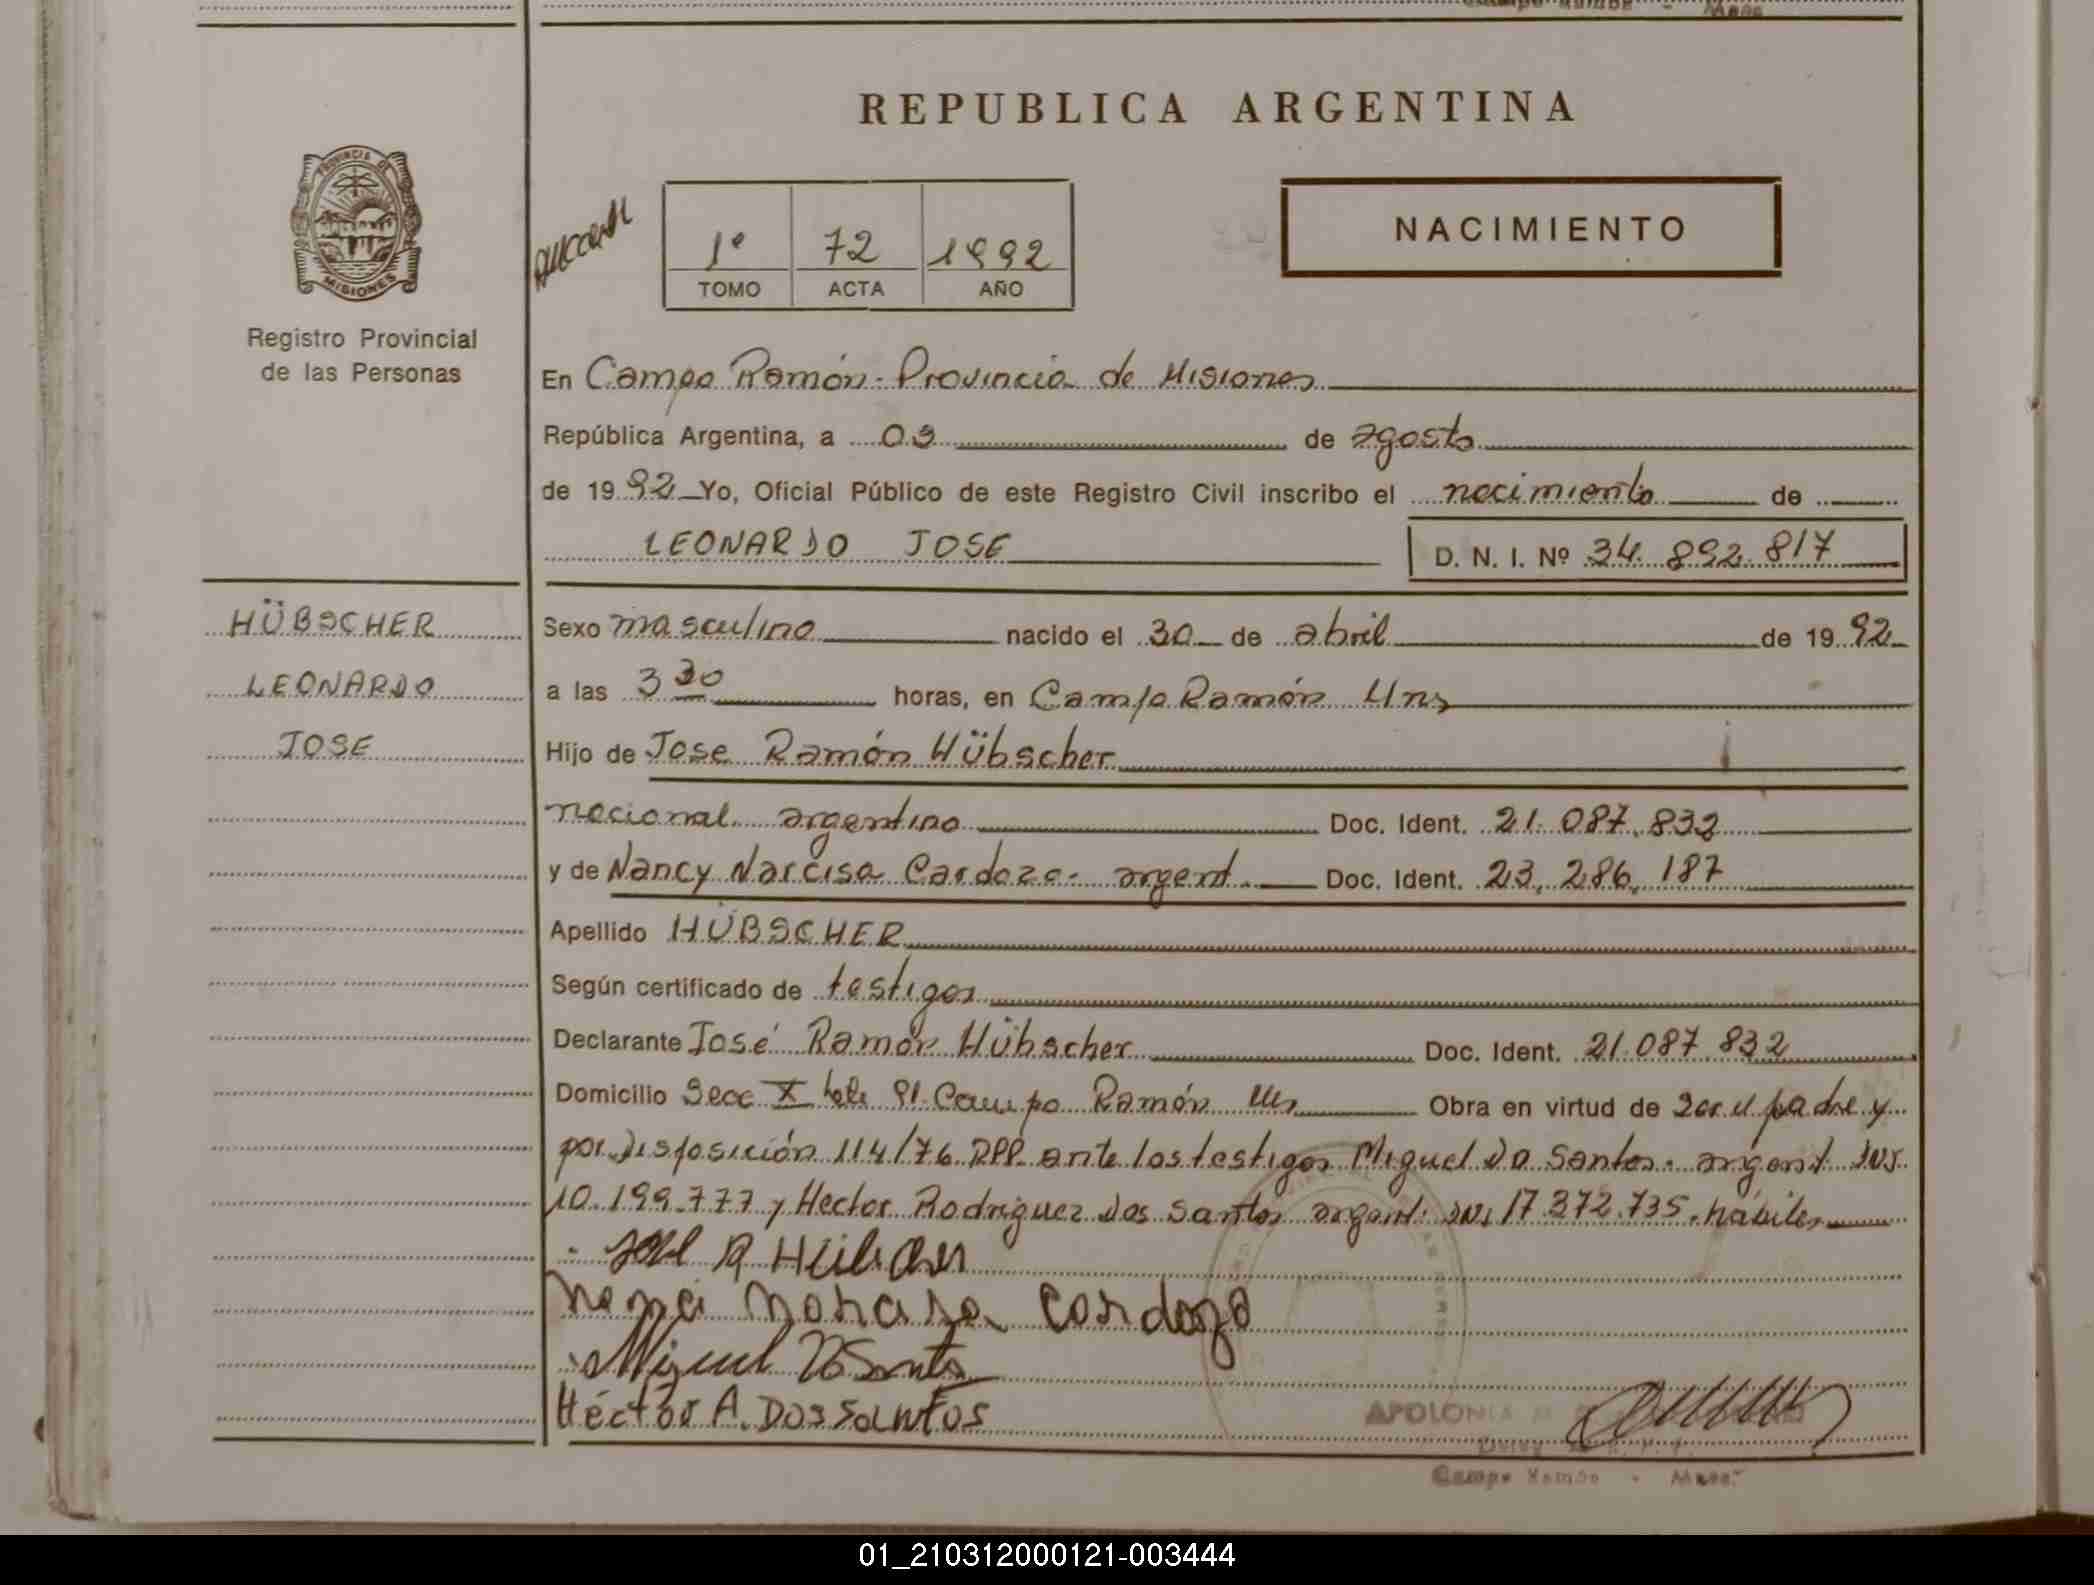 REPUBLICA ARGENTINA
PROVINCIA DE
MISIONES
Registro Provincial
de las Personas
1º 72 1992
TOMO ACTA AÑO
NACIMIENTO
En Campo Ramón - Provincia de Misiones
República Argentina, a 03 de agosto
de 1992 Yo, Oficial Público de este Registro Civil inscribo el nacimiento de
LEONARDO JOSE D. N. I. Nº 34.892.817
HÜBSCHER
LEONARDO
JOSE
Sexo masculino nacido el 30 de abril de 1992
a las 3 30 horas, en Campo Ramón Mns
Hijo de Jose Ramón Hübscher
nacional argentino Doc. Ident. 21.087.832
y de Nancy Narcisa Cardozo - argent. Doc. Ident. 23.286.187
Apellido HÜBSCHER
Según certificado de testigos
Declarante José Ramón Hübscher Doc. Ident. 21.087.832
Domicilio Secc X lote 91 Campo Ramón Mns Obra en virtud de ser el padre y
por Disposición 114/76 RPP ante los testigos Miguel Do Santos - argent. DNI
10.199.777 y Hector Rodriguez Dos Santos argent. DNI 17.372.735. hábiles
Héctor A. Dos Santos
APOLONIA
Campo Ramón - Mnes.
01_210312000121-003444